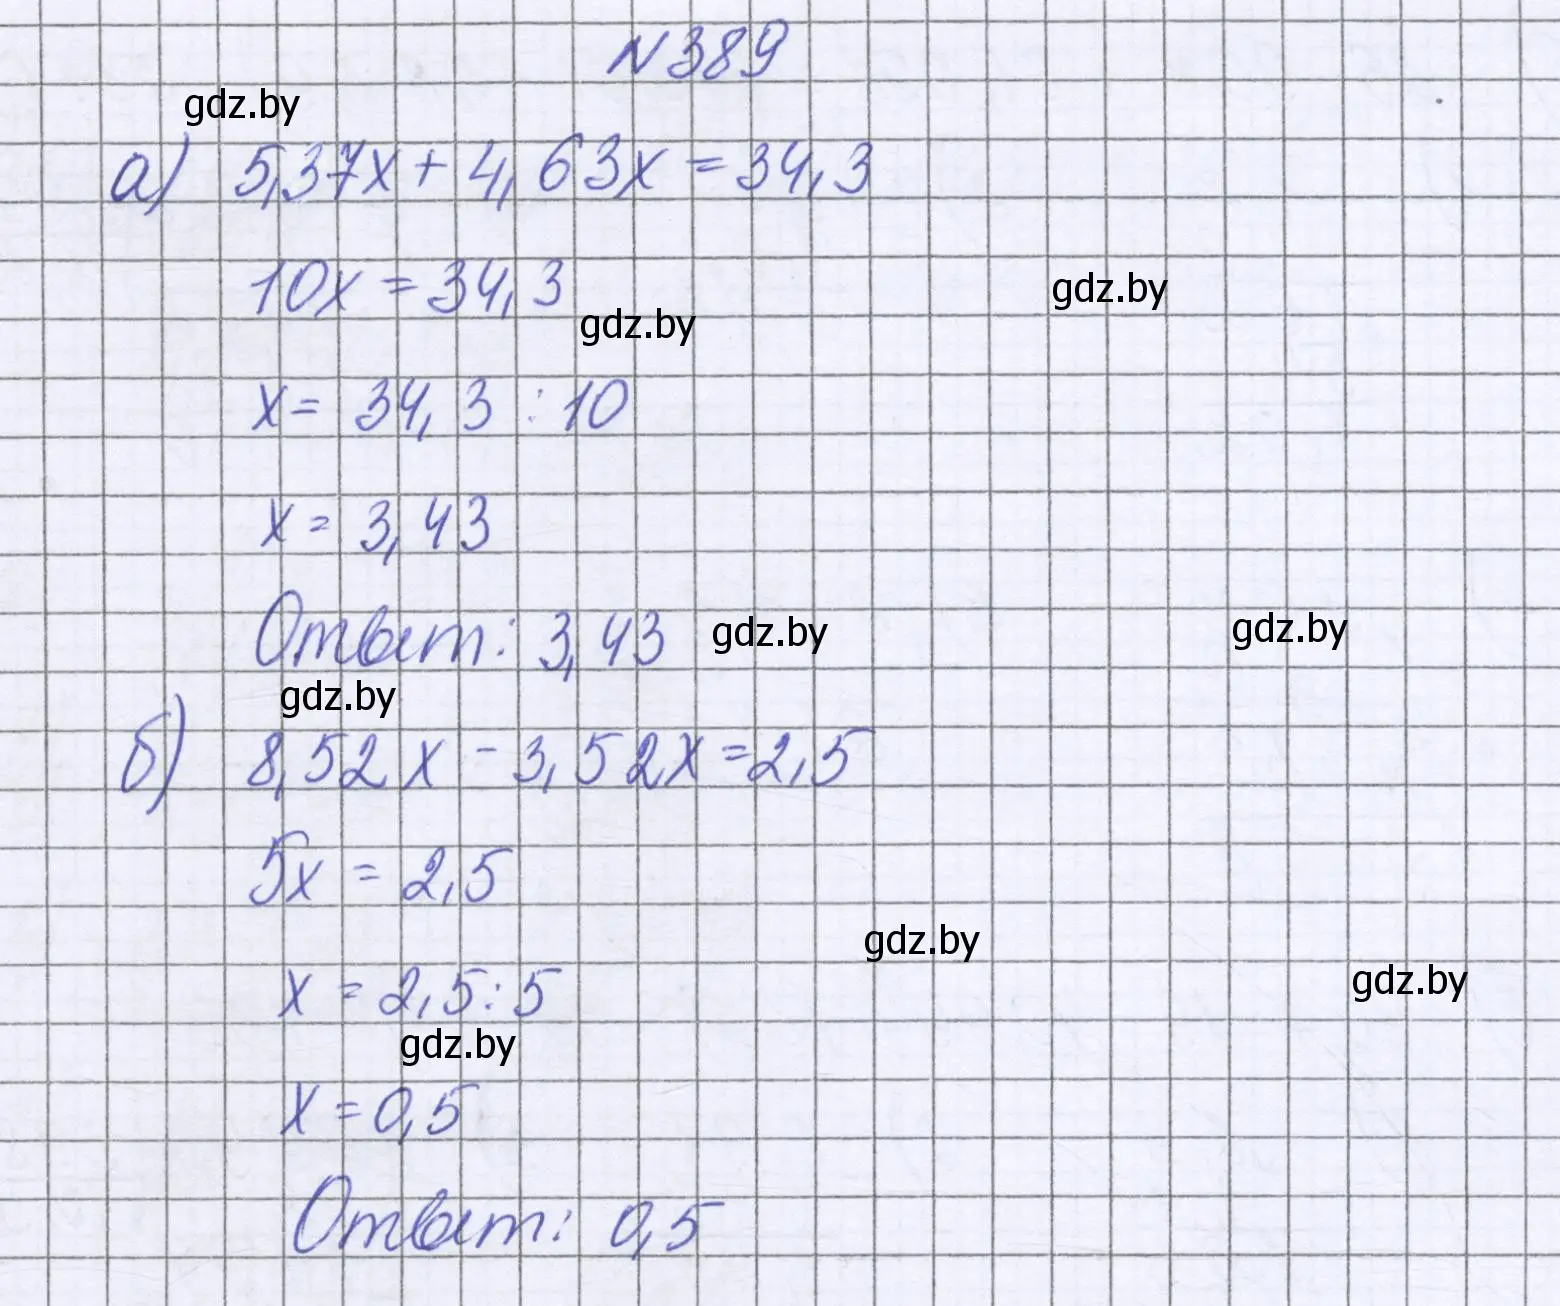 N 389
gdz.by
а) 5,37x + 4,63x = 34,3
10x = 34,3
gdz.by
gdz.by
x = 34,3 : 10
x = 3,43
Ответ: 3,43
gdz.by
gdz.by
gdz.by
б) 8,52x - 3,52x = 2,5
5x = 2,5
gdz.by
x = 2,5 : 5
gdz.by
gdz.by
x = 0,5
Ответ: 0,5